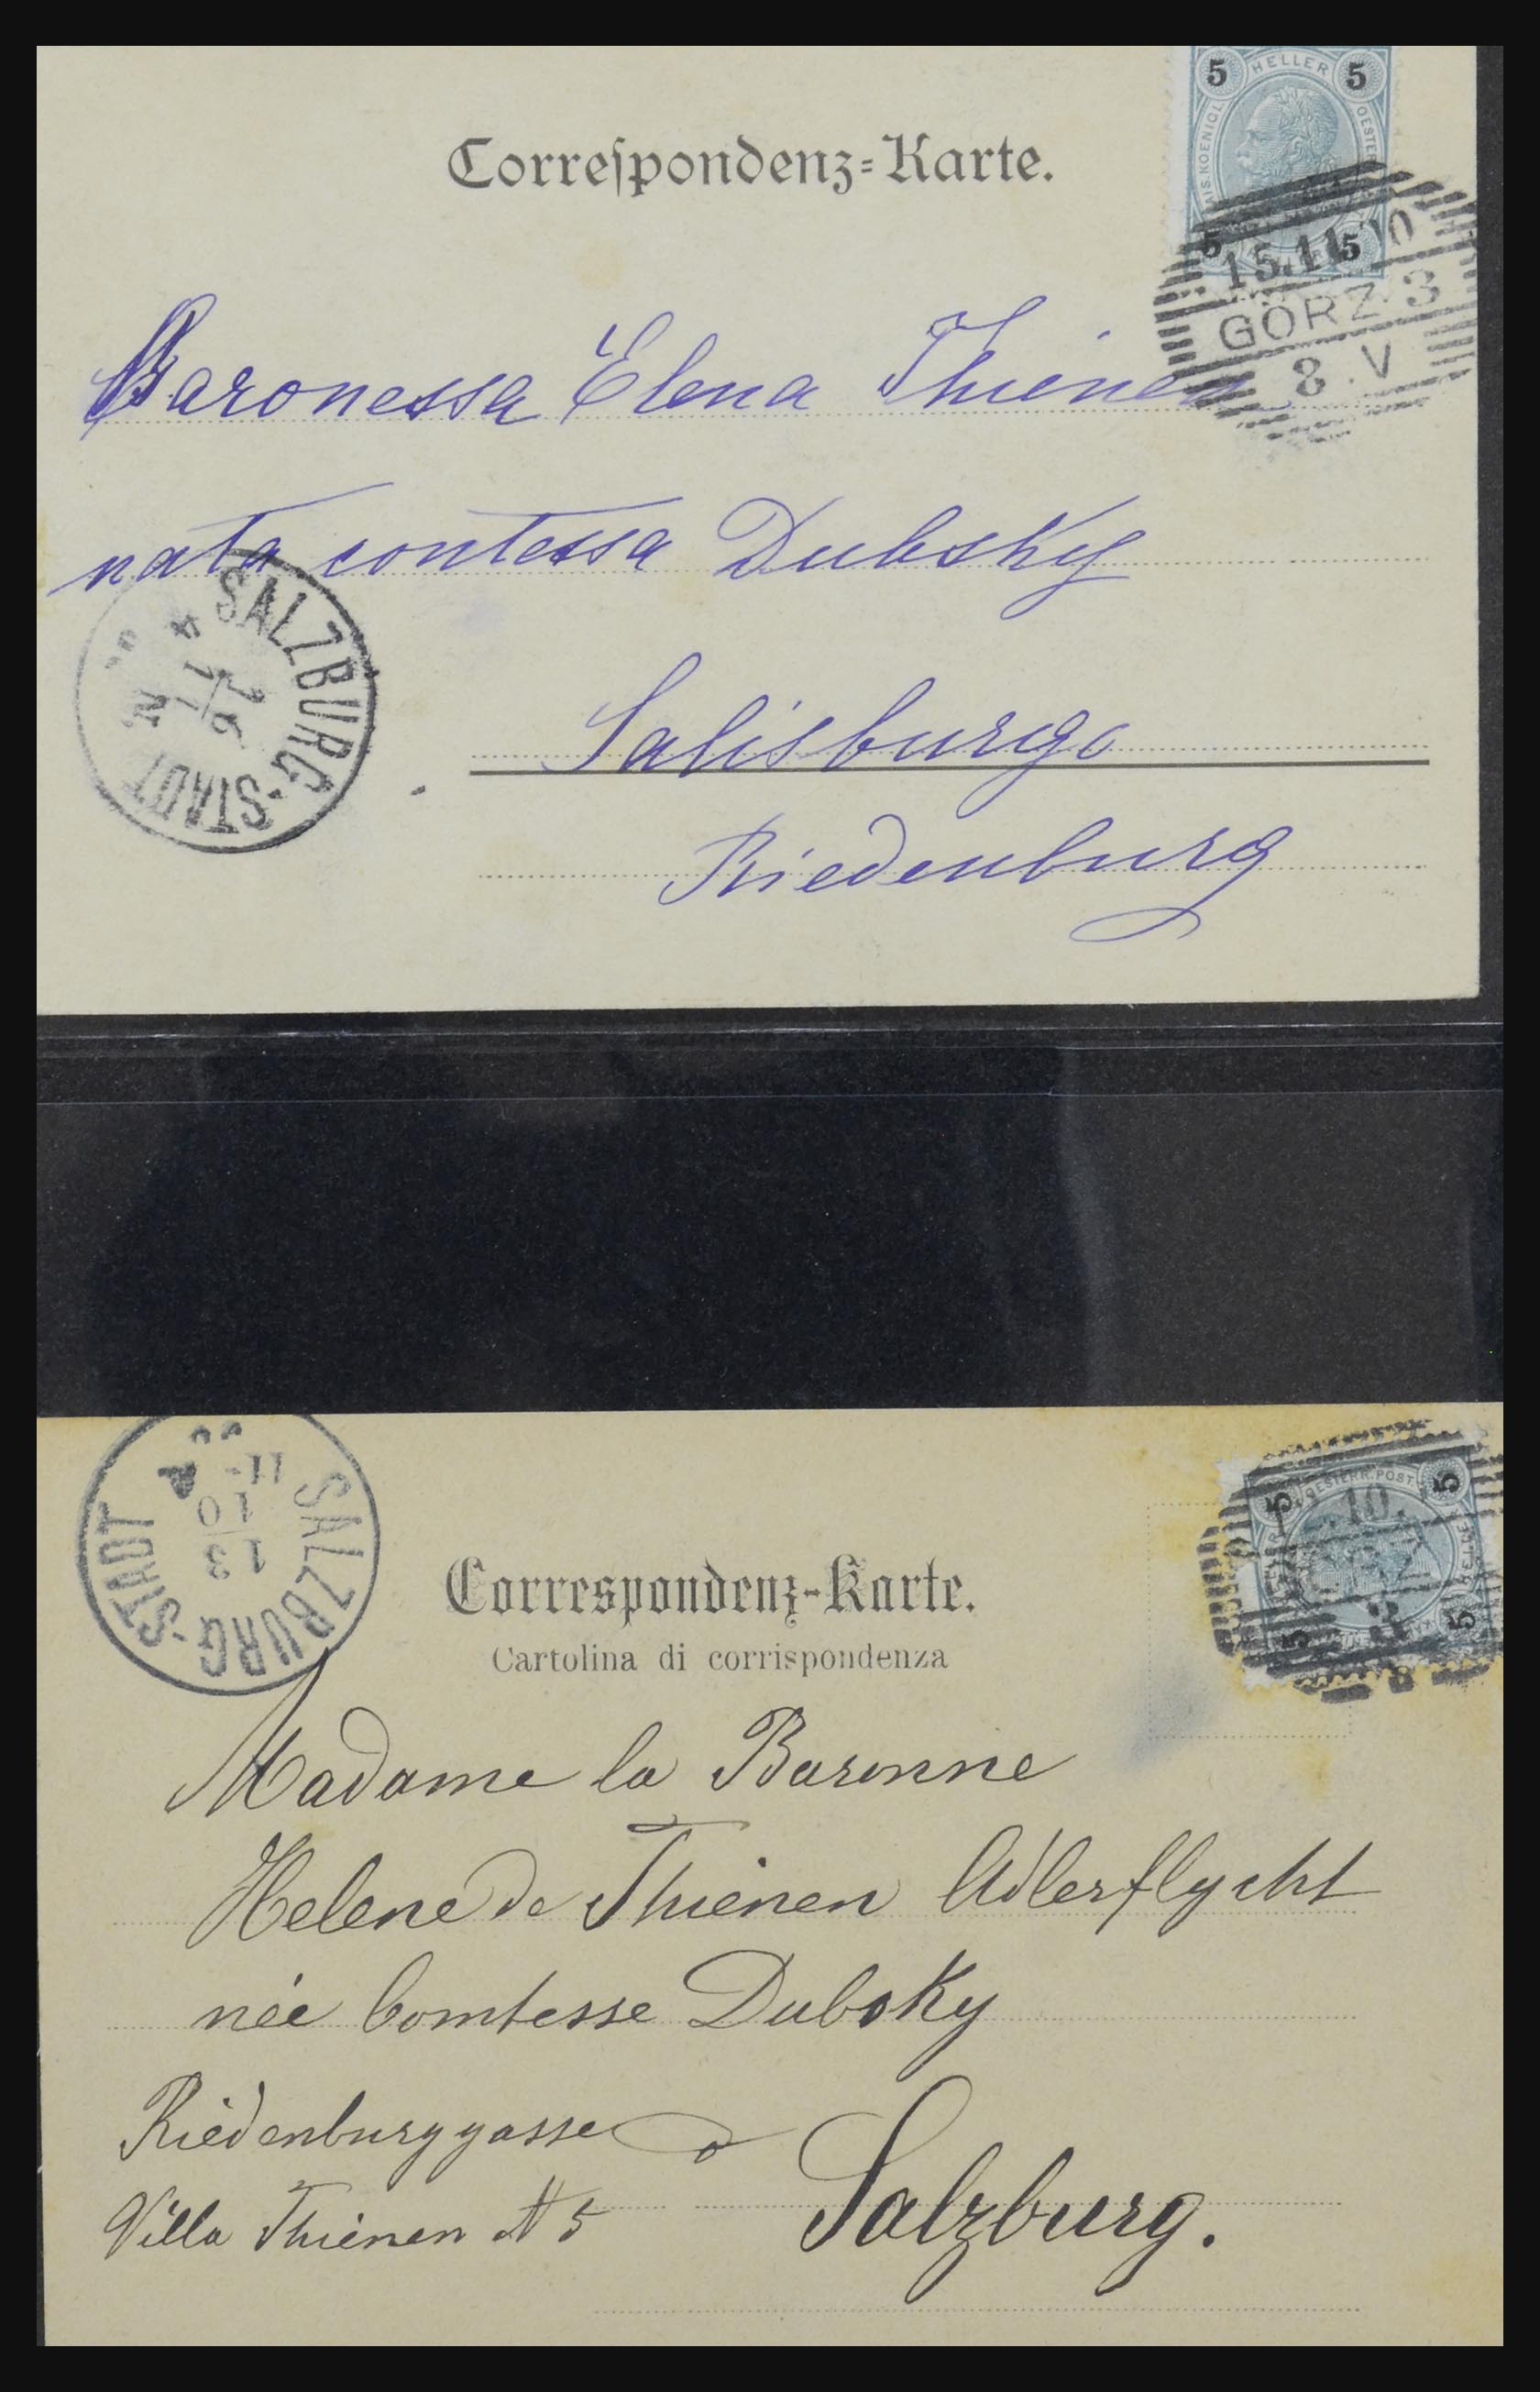 5 HELLER 5
Correſpondenz=Karte.
5 5
15.11. 00
GÖRZ 3
8.V
Baronessa Elena Thienen
nata contessa Dubsky
SALZBURG-STADT
Salisburgo
Riedenburg
SALZBURG-STADT
13
10
11-
OESTERR.POST
5 5
.10.
5 5
3
Correspondenz-Karte.
Cartolina di corrispondenza
Madame la Baronne
Helene de Thienen Adlerflycht
née Comtesse Dubsky
Riedenburggasse
Salzburg.
Villa Thienen N 5